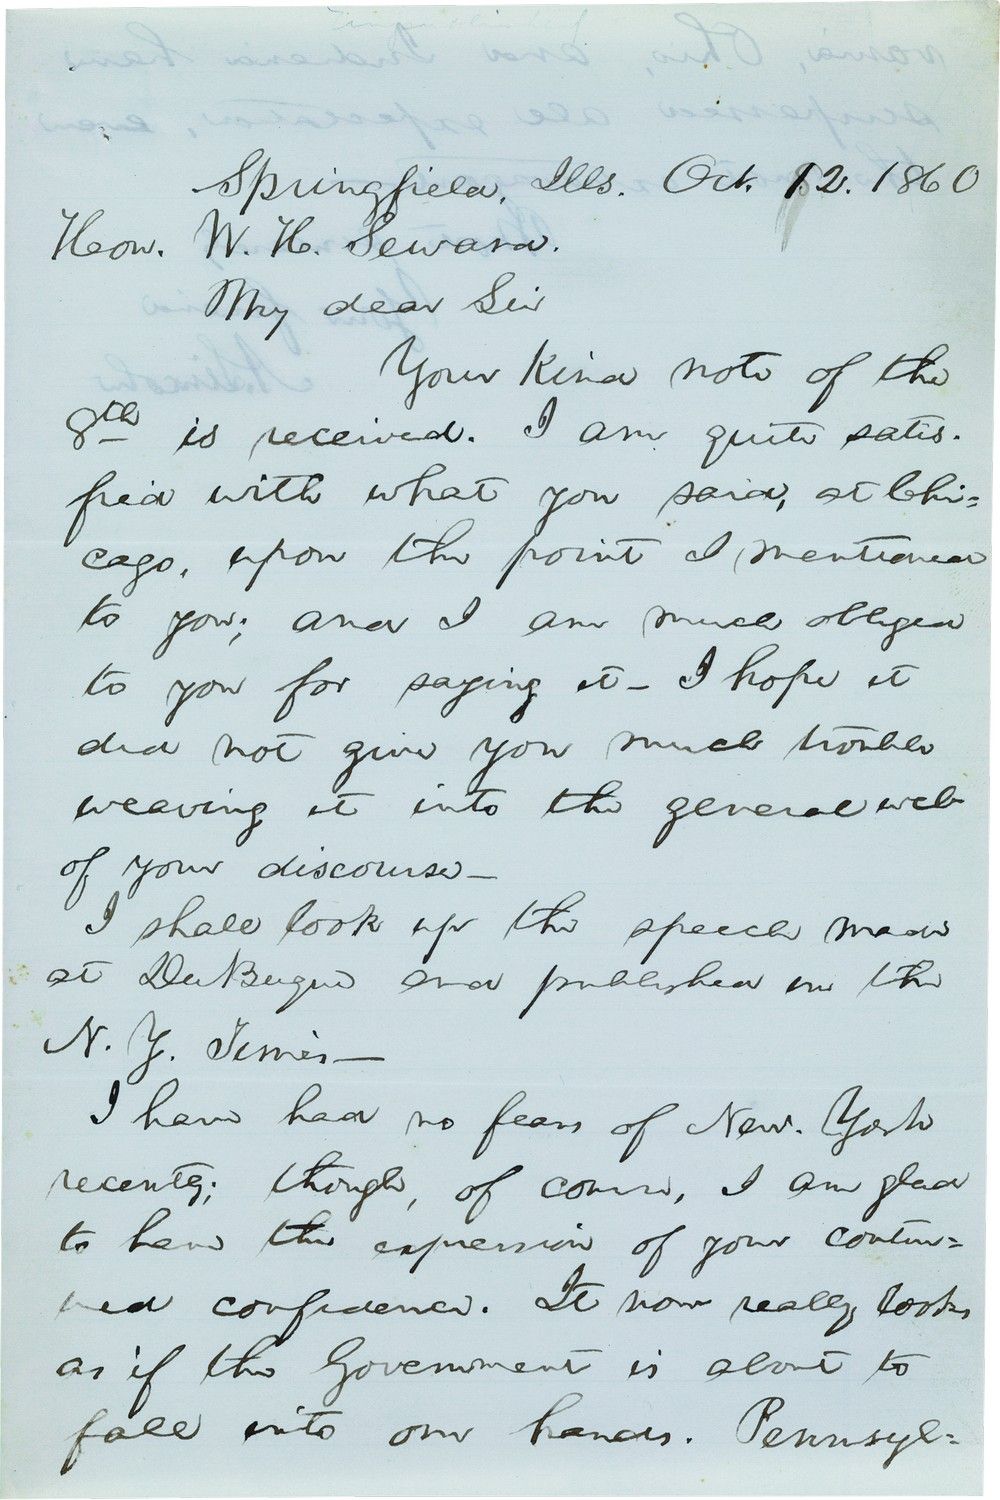 Springfield, Ills. Oct. 12. 1860
Hon. W. H. Seward.
My dear Sir
Your kind note of the
8th is received. I am quite satis-
fied with what you said, at Chi=
cago, upon the point I mentioned
to you; and I am much obliged
to you for saying it— I hope it
did not give you much trouble
weaving it into the general web
of your discourse—
I shall look up the speech made
at DuBuque and published in the
N. Y. Times—
I have had no fears of New-York
recently; though, of course, I am glad
to have the expression of your contin=
ued confidence. It now really looks
as if the Government is about to
fall into our hands. Pennsyl=